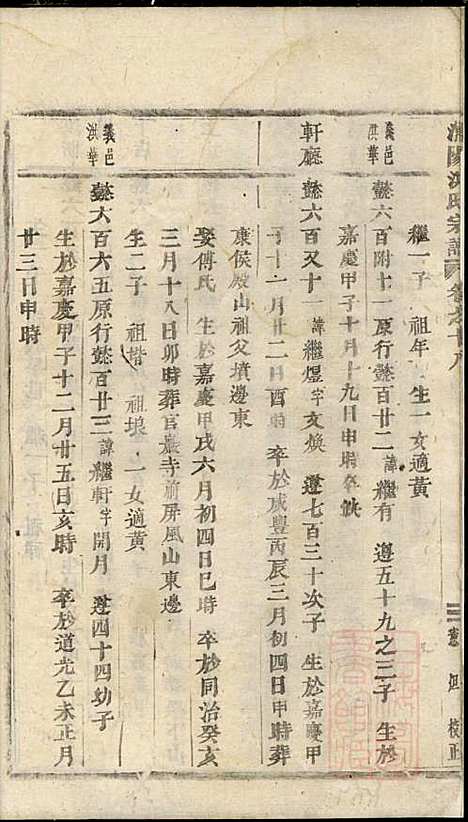 浦陽洪氏宗譜 卷之十八
繼一子 祖年 生一女適黃
義邑洪華
懿六百附十一原行懿百廿二諱繼有 遵五十九之三子 生於
嘉慶甲子十月十九日申時卒缺
軒廳
懿六百又十一諱繼煜字文煥 遵七百三十次子 生於嘉慶甲
子十一月廿二日酉時 卒於咸豐丙辰三月初四日申時葬
康侯殿山祖父墳邊東
娶傅氏 生於嘉慶甲戌六月初四日巳時 卒於同治癸亥
三月十八日卯時葬官巖寺前屏風山東邊
生二子 祖楷 祖埌 一女適黃
義邑洪華
懿六百六五原行懿百廿三諱繼軒字開月 遵四十四幼子
生於嘉慶甲子十二月廿五日亥時 卒於道光乙未正月
廿三日申時
校正